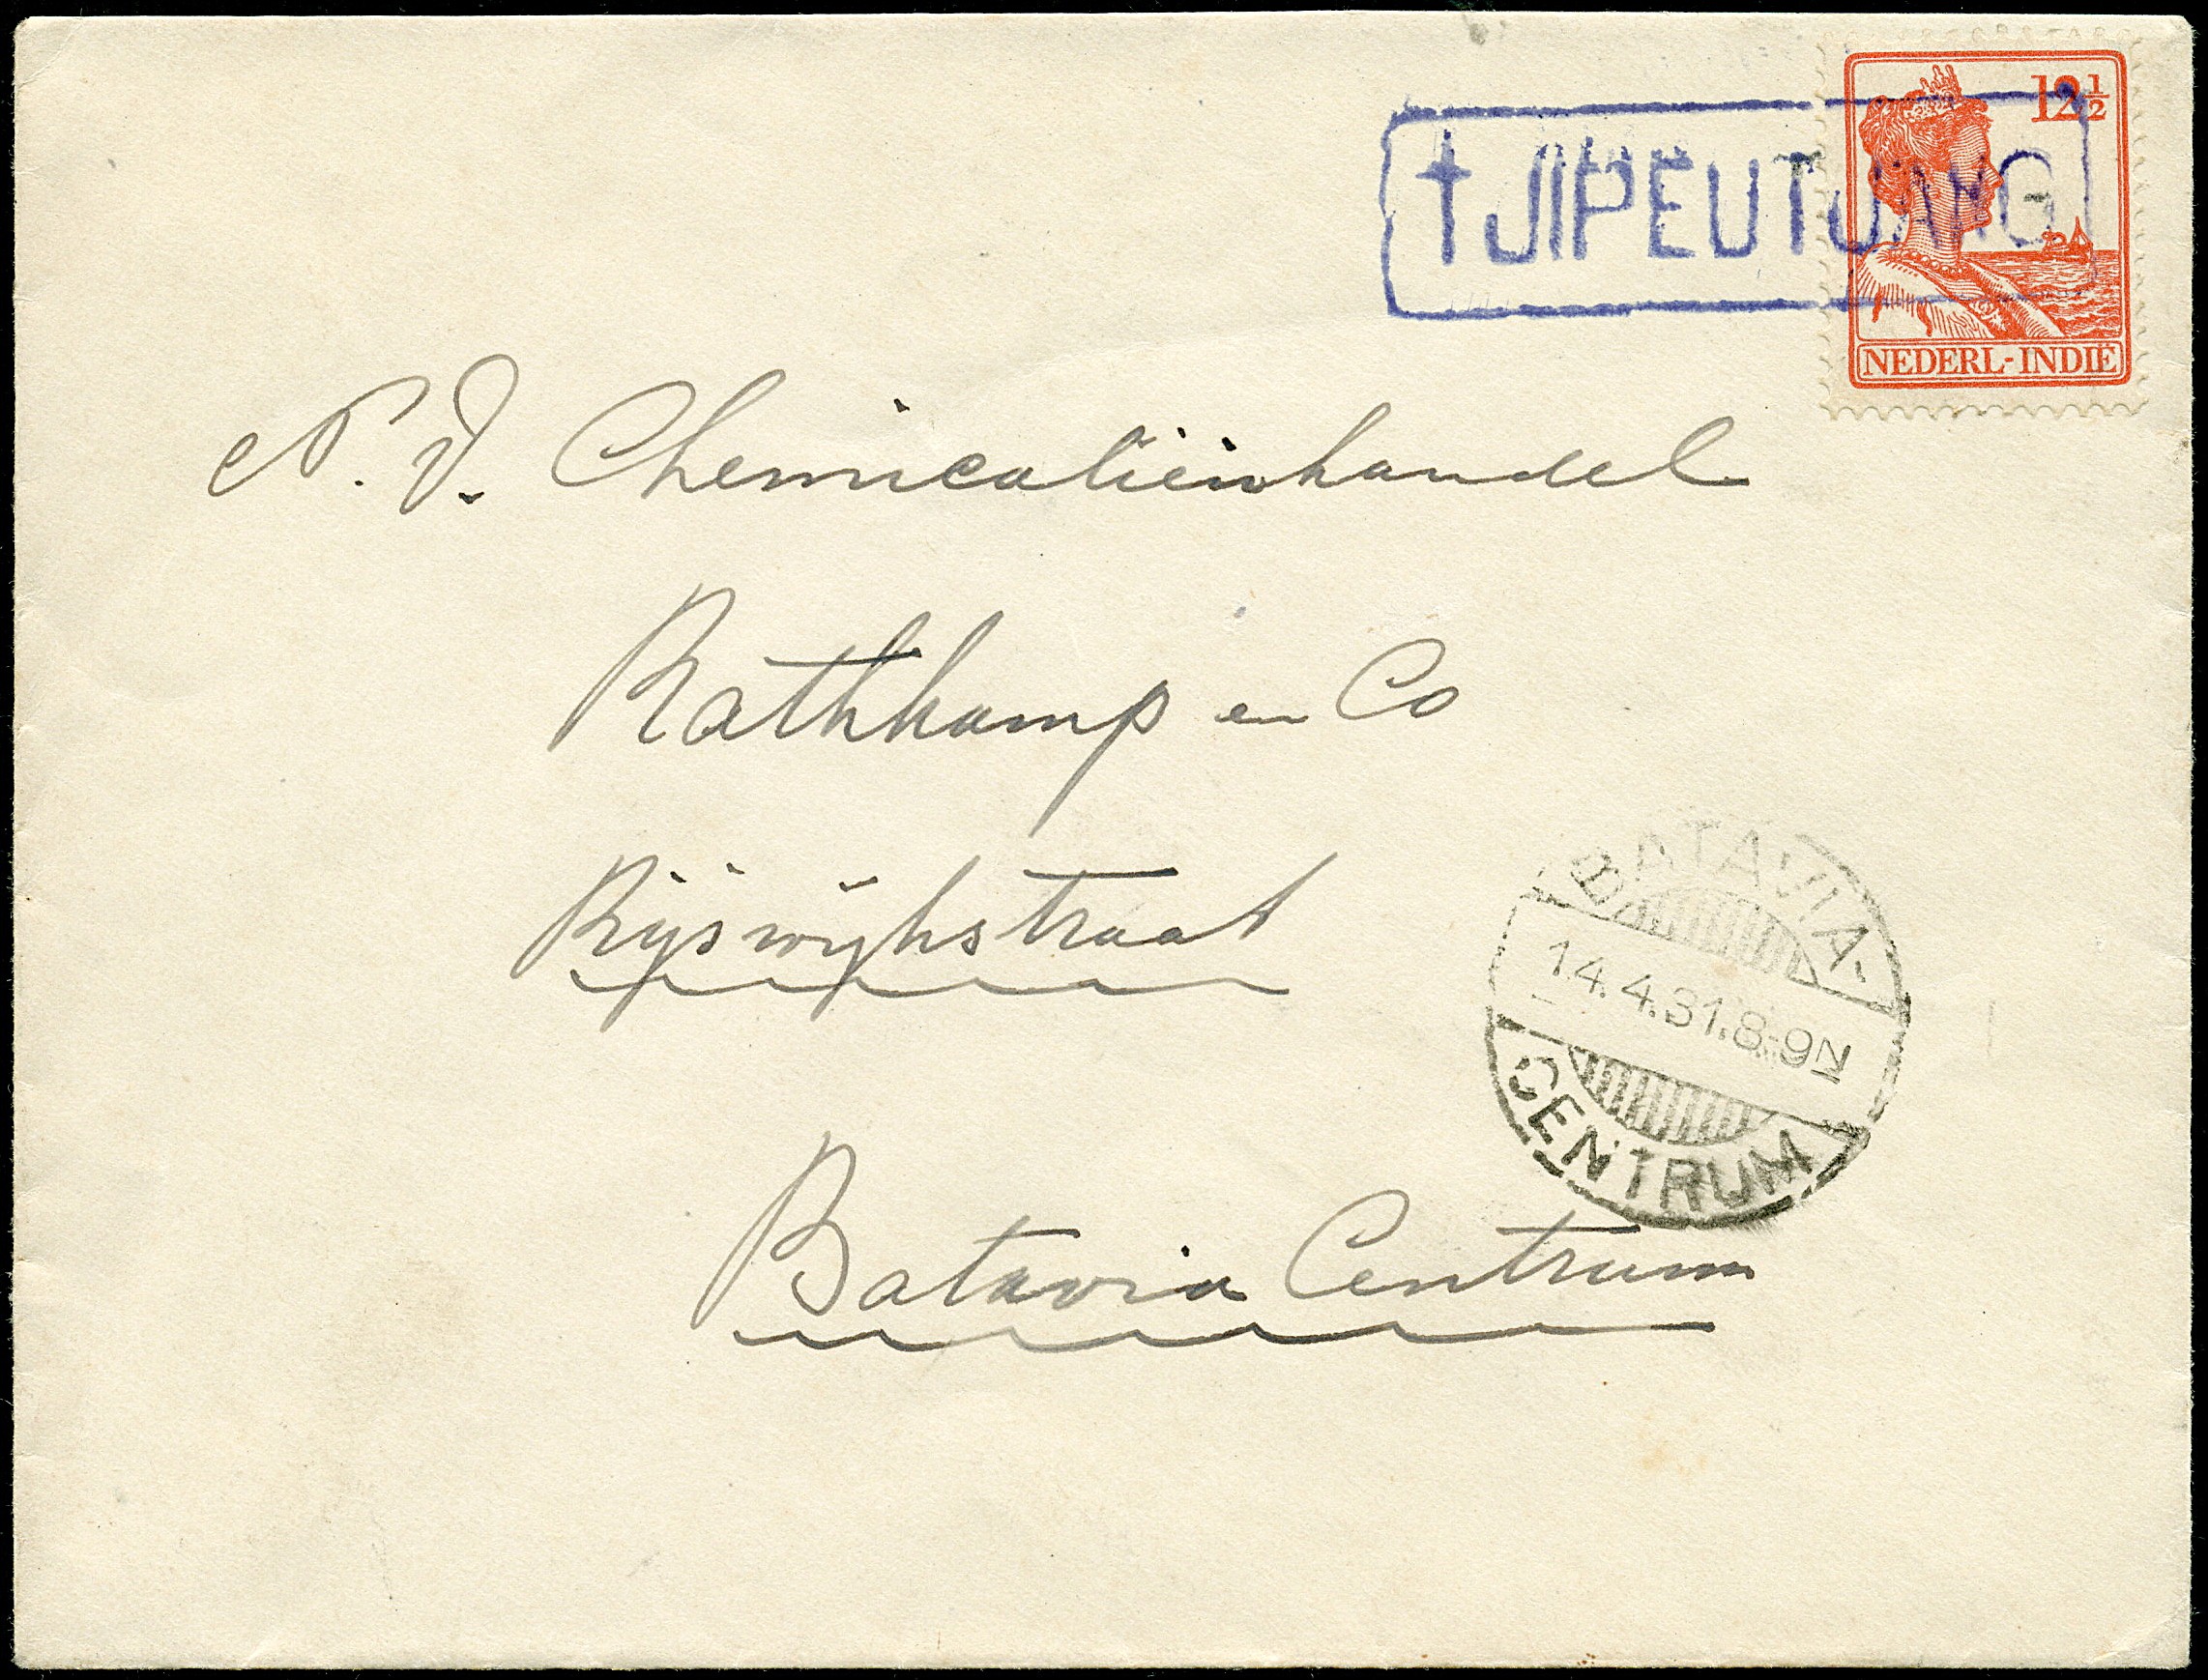 12½
TJIPEUTJANG
NEDERL-INDIË
N.V. Chemicaliënhandel
Rathkamp en Co
Rijswijkstraat
BATAVIA-
14.4.31.8-9N
CENTRUM
Batavia Centrum